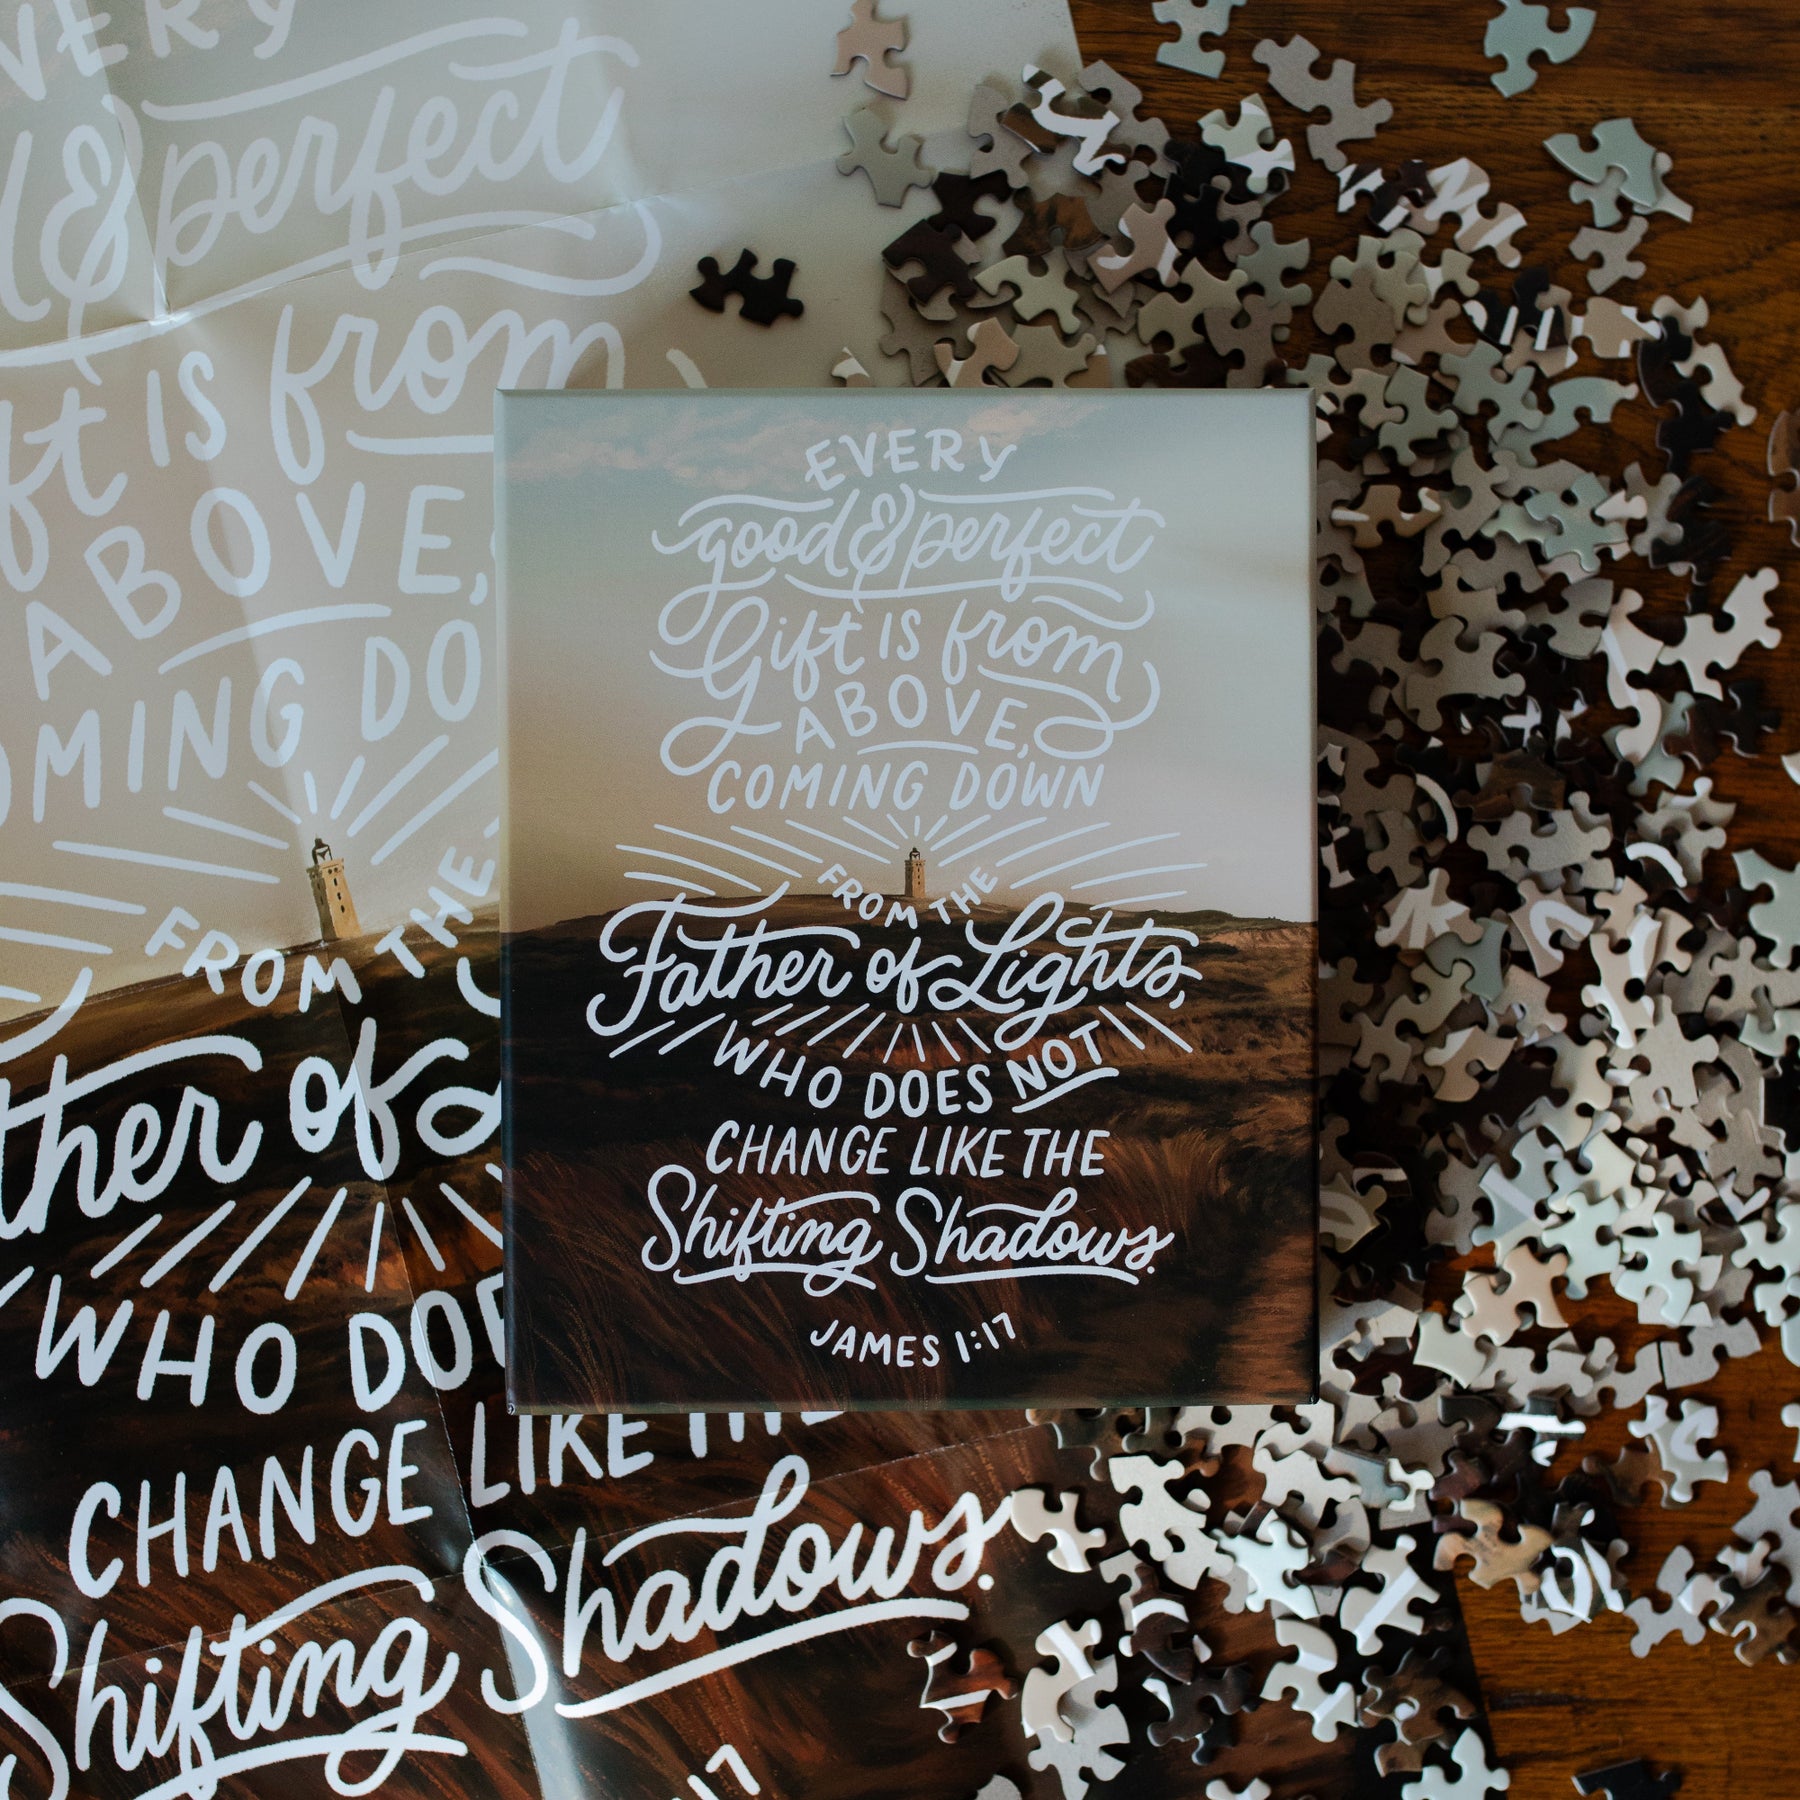 VERY
& perfect
ft IS from
ABOVE,
OMING DO
FROM THE
ther of
WHO DOE
CHANGE LIKE THE
Shifting Shadows.
:17
EVERY
good & perfect
Gift IS from
ABOVE,
COMING DOWN
FROM THE
Father of Lights,
WHO DOES NOT
CHANGE LIKE THE
Shifting Shadows.
JAMES 1:17